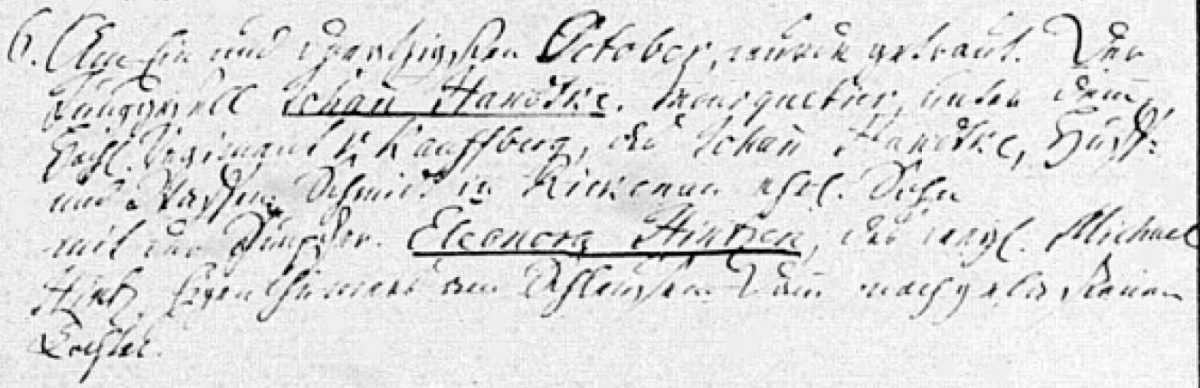 6. Am Ein und zwanzigsten October, wurde getraut. Der
Junggesell Johañ Handtke. Mousquetier, unter dem
Hochl. Regiment v. Kauffberg, des Johañ Handtke, Huff-
und Waffen Schmidt in Rickenau ehel. Sohn
mit der Jungfer. Eleonora Hintzen, des weyl. Michael
Hintz, Eigenthümers am Schleusen Dam nachgelassenen
Tochter.